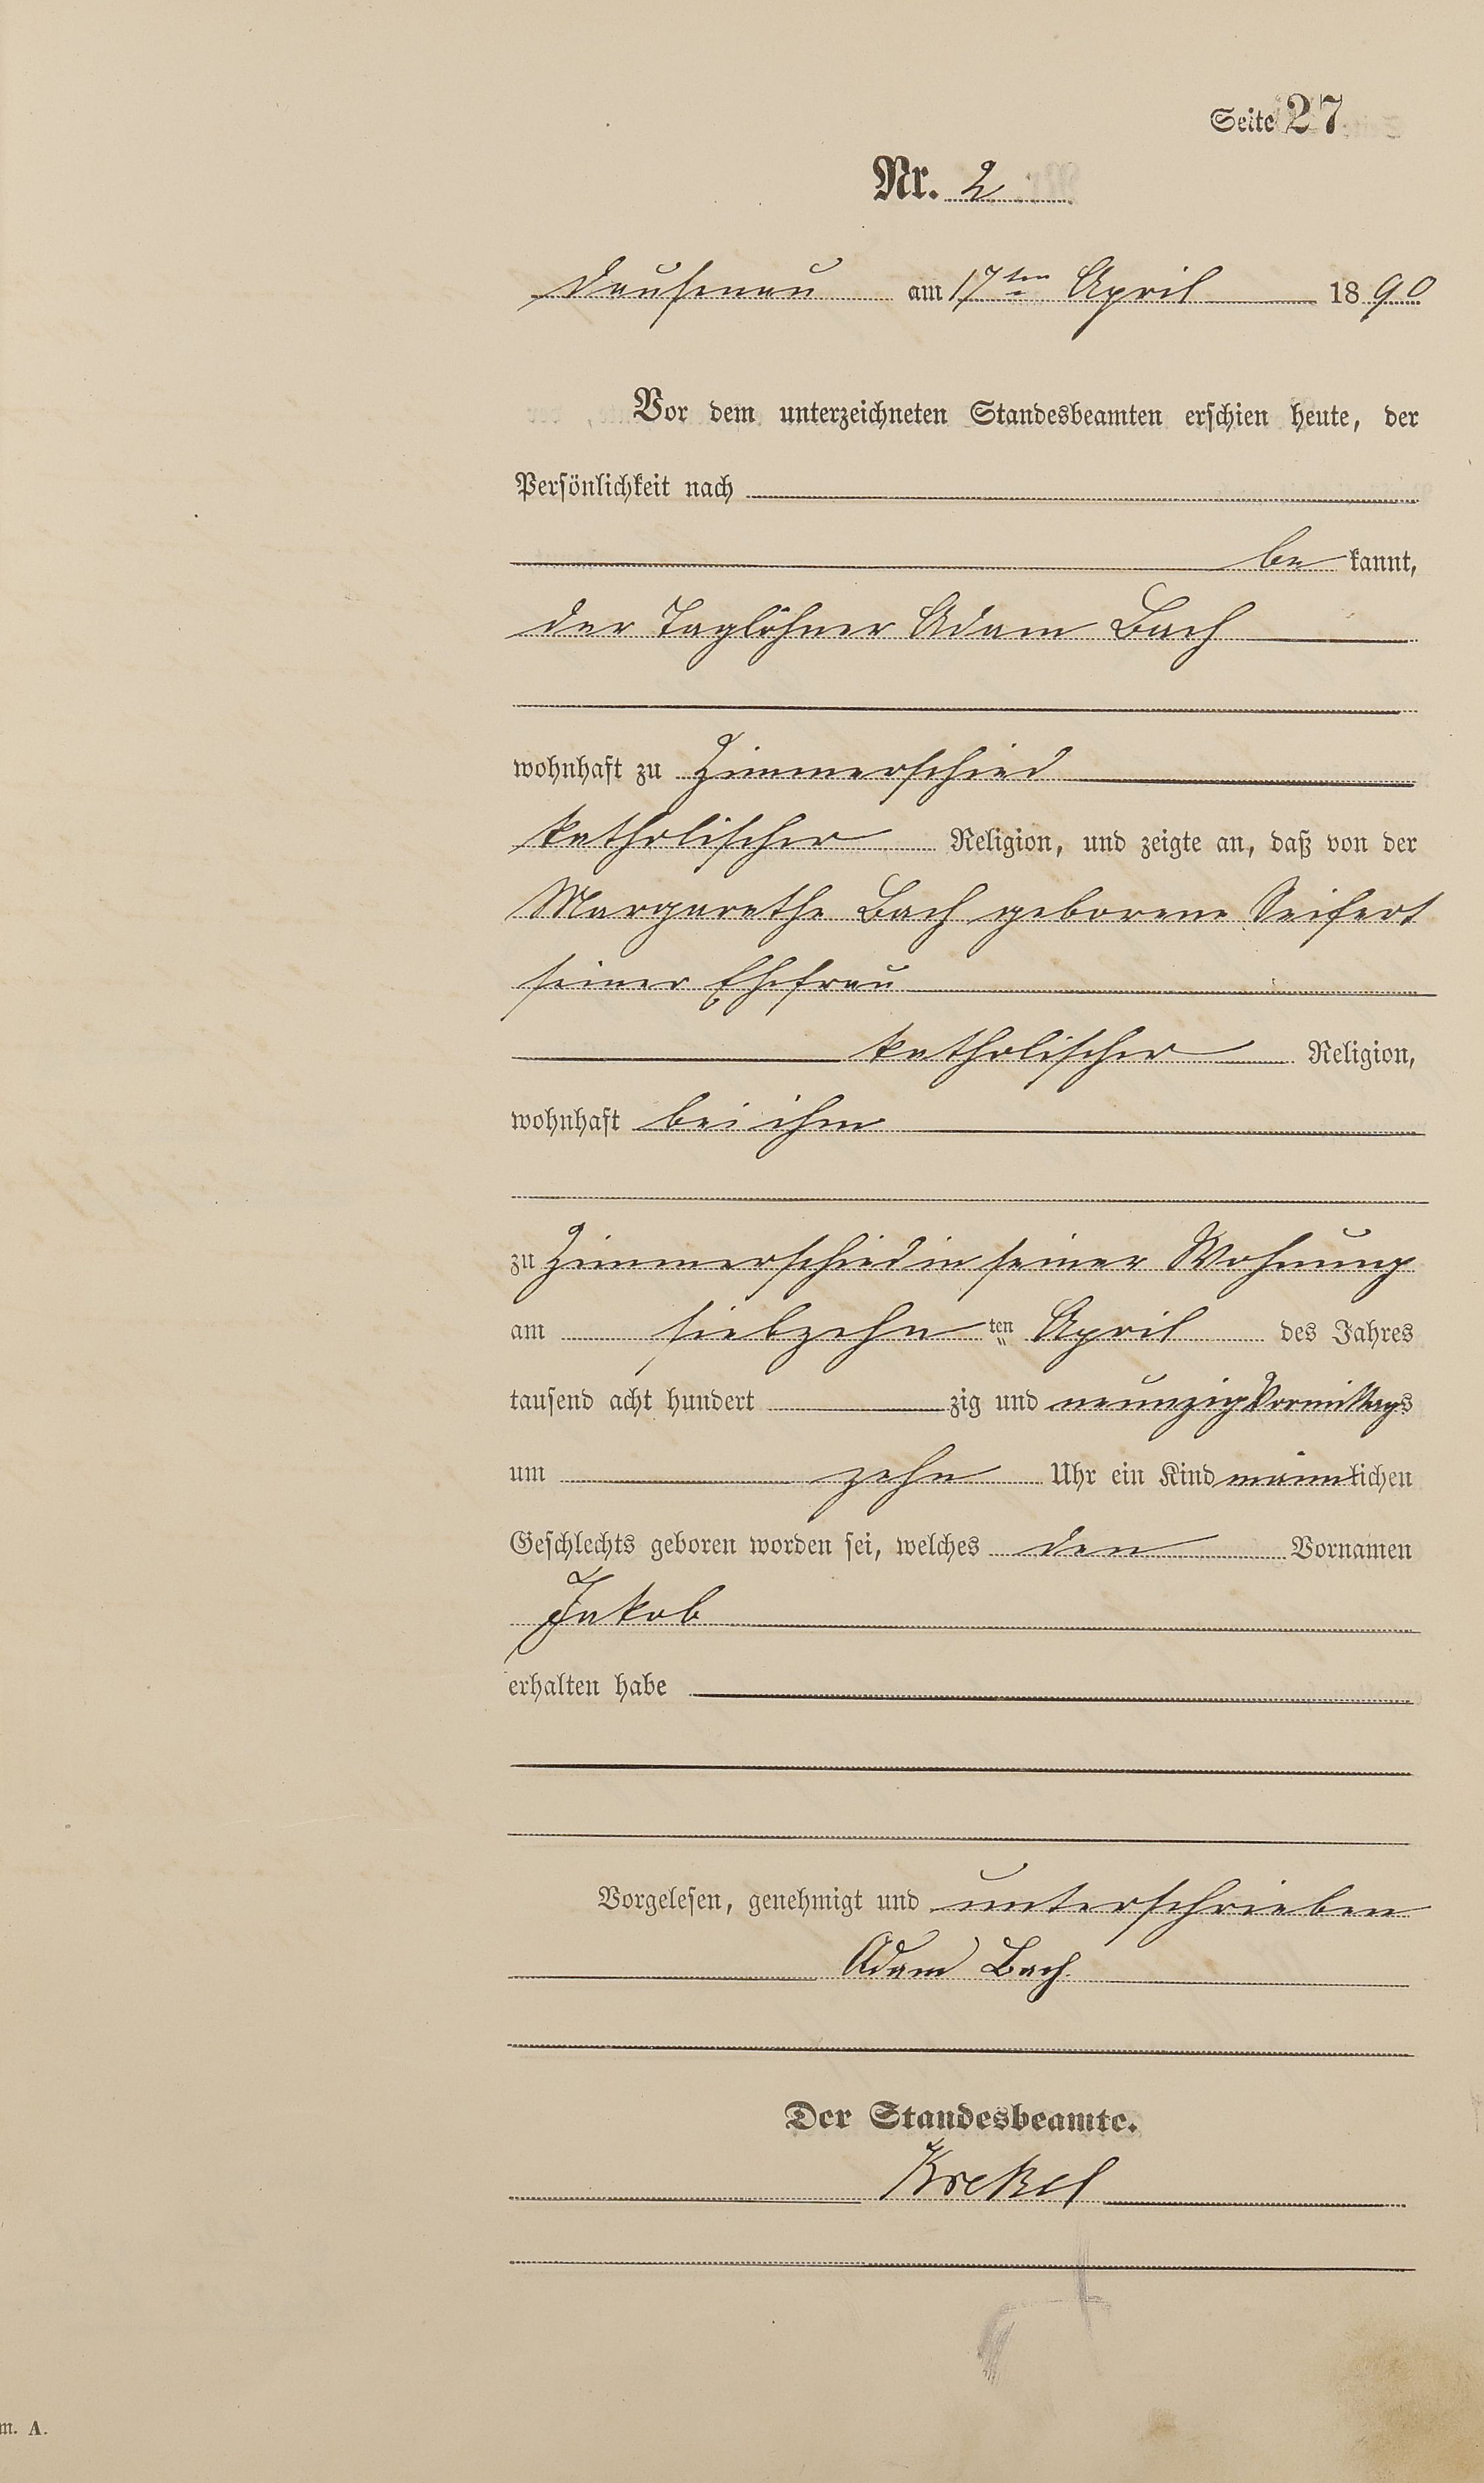 Seite 27
Nr. 2
Dausenau am 17ten April 1890
Vor dem unterzeichneten Standesbeamten erschien heute, der
Persönlichkeit nach
be kannt,
der Taglöhner Adam Bach
wohnhaft zu Zimmerschied
katholischer Religion, und zeigte an, daß von der
Margarethe Bach geborene Seifert
seiner Ehefrau
katholischer Religion,
wohnhaft bei ihm
zu Zimmerschied in seiner Wohnung
am siebzehn ten April des Jahres
tausend acht hundert zig und neunzig Vormittags
um zehn Uhr ein Kind männlichen
Geschlechts geboren worden sei, welches den Vornamen
Jakob
erhalten habe
Vorgelesen, genehmigt und unterschrieben
Adam Bach.
Der Standesbeamte.
Krekel
m. A.